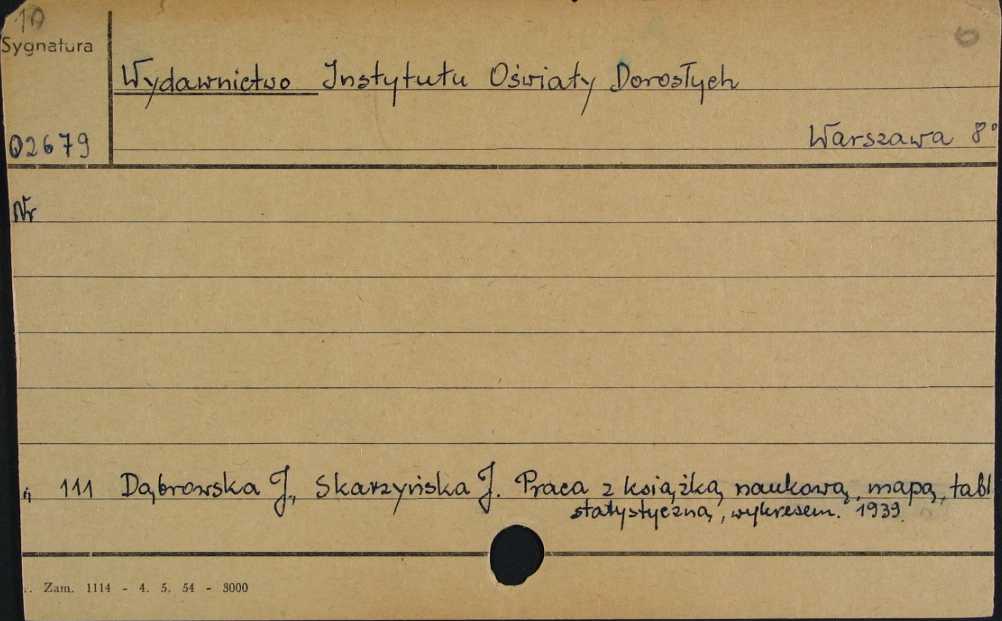 10
Sygnatura
Wydawnictwo Instytutu Oświaty Dorosłych
02679
Warszawa 8°
Nr
111 Dąbrowska J., Skarzyńska J. Praca z książką naukową, mapą, tabl
statystyczną, wykresem. 1939.
Zam. 1114 - 4. 5. 54 - 3000